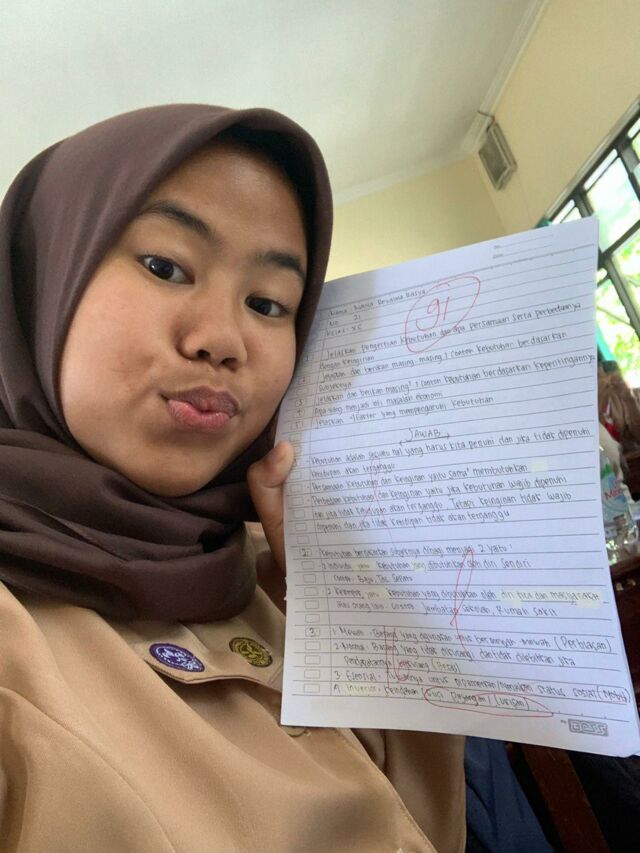 No.
Date.
Nama :
No : 21
Kelas : XE
91
1 Jelaskan pengertian kebutuhan dan apa persamaan serta perbedaannya
dengan keinginan
2 Jelaskan dan berikan masing-masing 1 contoh kebutuhan berdasarkan
subjeknya
3 Jelaskan dan berikan masing² 1 contoh kebutuhan berdasarkan kepentingannya
4 Apa yang menjadi inti masalah ekonomi
5 Jelaskan faktor yang mempengaruhi kebutuhan
JAWAB
Kebutuhan adalah sesuatu hal yang harus kita penuhi dan jika tidak dipenuhi
kebutuhan akan terganggu
Persamaan kebutuhan dan keinginan yaitu sama² membutuhkan
Perbedaan kebutuhan dan keinginan yaitu jika kebutuhan wajib dipenuhi
dan jika tidak kehidupan akan terganggu Tetapi keinginan tidak wajib
dipenuhi dan jika tidak kehidupan tidak akan terganggu
2. Kebutuhan berdasarkan subjeknya dibagi menjadi 2 yaitu :
1 Individu yaitu kebutuhan yang dibutuhkan oleh diri sendiri
Contoh : Baju, Tas, Sepatu
2 Kelompok yaitu kebutuhan yang dibutuhkan oleh diri kita dan masyarakat
atau orang lain. Contoh Jembatan, Sekolah, Rumah sakit
3. 1. Mewah : Barang yang digunakan untuk bermewah mewah (Perhiasan)
2. Normal : Barang yang tidak dan tidak jika
Pendapatannya
3 Esensial : untuk status sosial
4 Inverior : Keindahan Cuci (wisan)